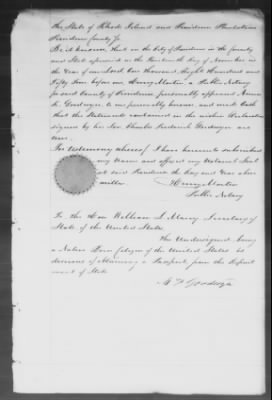 The State of Rhode Island and Providence Plantations
Providence County Ss
Be it known, that on the City of Providence in the County
and State aforesaid on the day of November in
the Year of our Lord One thousand Eight Hundred and
Fifty four before me Henry Martin a Public Notary
for said County of Providence personally appeared
to me personally known and made Oath
that the Statements contained in the within Declaration
signed by his Son Frederick are
true.
In Testimony whereof I have hereunto subscribed
my Name and affixed my Notarial Seal
at said Providence the day and Year above
written
Henry Martin
Public Notary
To the Hon William L Marcy Secretary of
State of the United States.
The Undersigned being
a Native Born Citizen of the United States is
desirous of obtaining a Passport from the Depart
ment of State